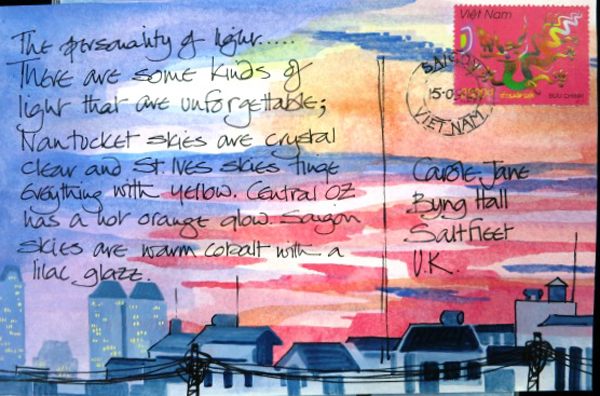 The personality of light.....
There are some kinds of
light that are unforgettable;
Nantucket skies are crystal
clear and St. Ives skies tinge
everything with yellow. Central OZ
has a hot orange glow. Saigon
skies are warm cobalt with a
lilac glaze.
Việt Nam
BƯU CHÍNH
SAIGON
15-0
VIETNAM
Carole, Jane
Byng Hall
Saltfleet
U.K.